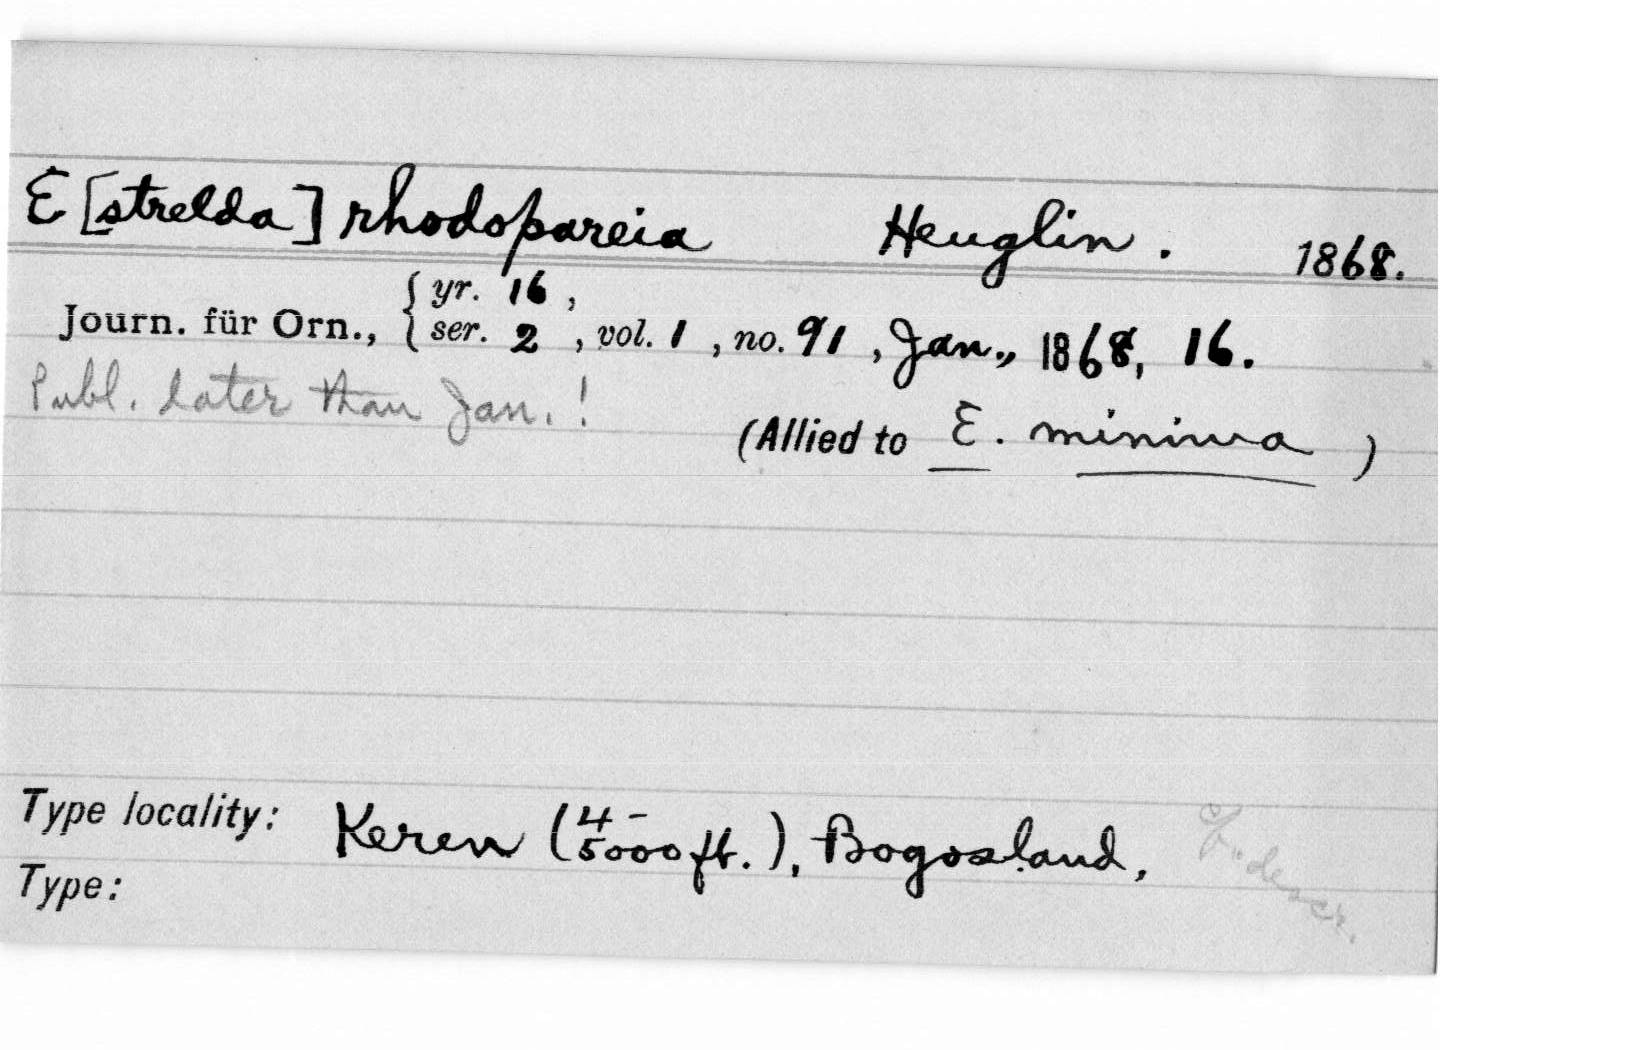 E[strelda] rhodopareia Heuglin. 1868.
Journ. für Orn., { yr. 16, ser. 2, vol. 1, no. 91, Jan., 1868, 16.
Publ. later than Jan.!
(Allied to E. minima)
Type locality: Keren (4-5000 ft.), Bogosland,
descr.
Type: